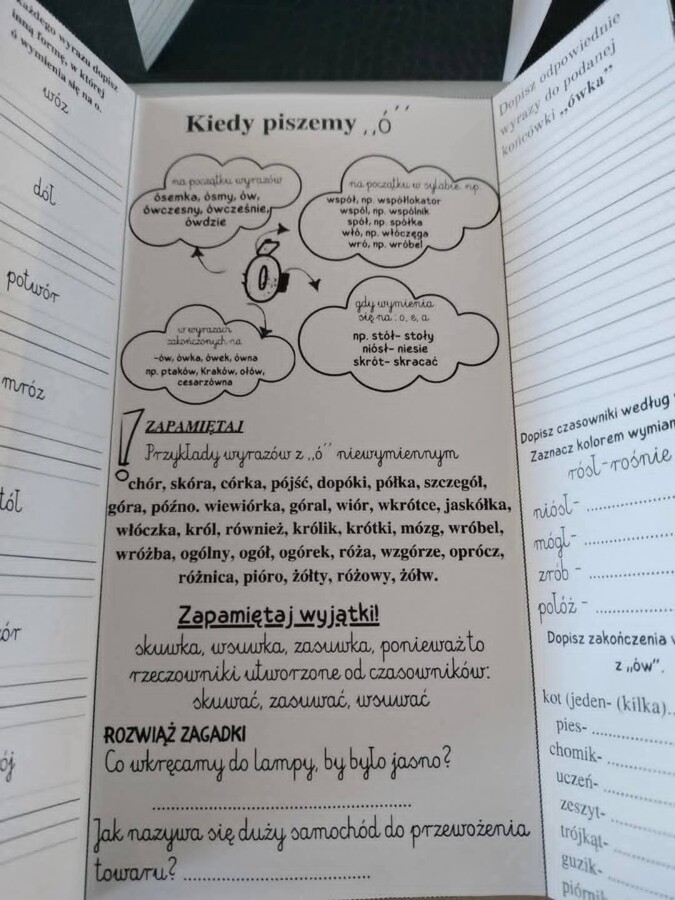 każdego wyrazu dopisz
inną formę, w której
ó wymienia się na o.
wóz
dół
potwór
mróz
Kiedy piszemy ,,ó´´
na początku wyrazów
ósemka, ósmy, ów,
ówczesny, ówcześnie,
ówdzie
na początku w sylabie np.
współ, np. współlokator
wspól, np. wspólnik
spół, np. spółka
włó, np. włóczęga
wró, np. wróbel
w wyrazach
zakończonych na
-ów, ówka, ówek, ówna
np. ptaków, Kraków, ołów,
cesarzówna
gdy wymienia
się na : o, e, a
np. stół- stoły
niósł- niesie
skrót- skracać
! ZAPAMIĘTAJ
Przykłady wyrazów z ,,ó´´ niewymiennym
chór, skóra, córka, pójść, dopóki, półka, szczegół,
góra, późno. wiewiórka, góral, wiór, wkrótce, jaskółka,
włóczka, król, również, królik, krótki, mózg, wróbel,
wróżba, ogólny, ogół, ogórek, róża, wzgórze, oprócz,
różnica, pióro, żółty, różowy, żółw.
Zapamiętaj wyjątki!
skuwka, wsuwka, zasuwka, ponieważ to
rzeczowniki utworzone od czasowników:
skuwać, zasuwać, wsuwać
ROZWIĄŻ ZAGADKI
Co wkręcamy do lampy, by było jasno?
Jak nazywa się duży samochód do przewożenia
towaru?
Dopisz odpowiednie
wyrazy do podanej
końcówki ,,ówka”
Dopisz czasowniki według
Zaznacz kolorem
rósł-rośnie
niósł-
mógł-
zrób -
połóż -
Dopisz zakończenia
z ,,ów”.
kot (jeden- (kilka)
pies-
chomik-
uczeń-
zeszyt-
trójkąt-
guzik-